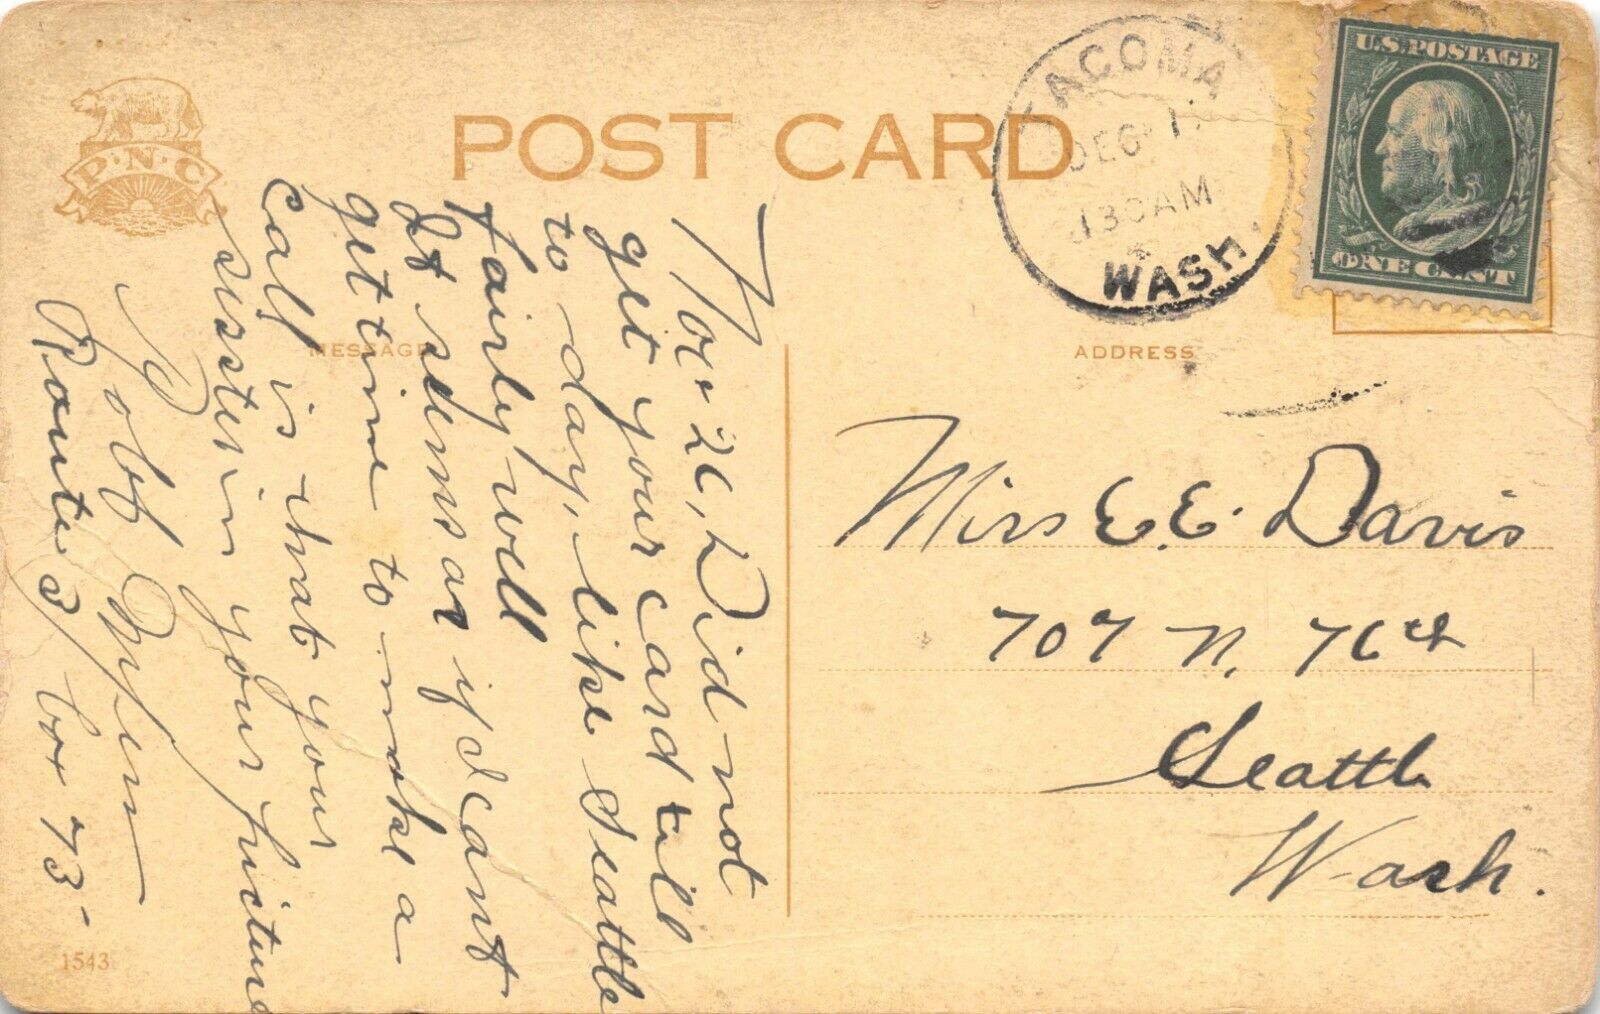 P.N.C
POST CARD
TACOMA
DEC 1
130AM
WASH.
U.S. POSTAGE
ONE CENT
MESSAGE
ADDRESS
Nov 26, Did not
get your card till
to day, like Seattle
fairly well
It seems as if I cant
get time to make a
call is that your
sister in your picture
Route 3 box 73-
Miss E. E. Davis
707 N. 76th
Seattle
Wash.
1543